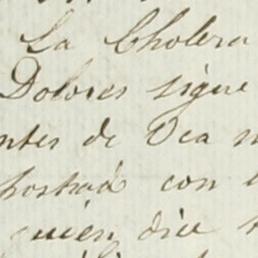 La Cholera
Dolores sigue
ntes de Oca
con
quien dice